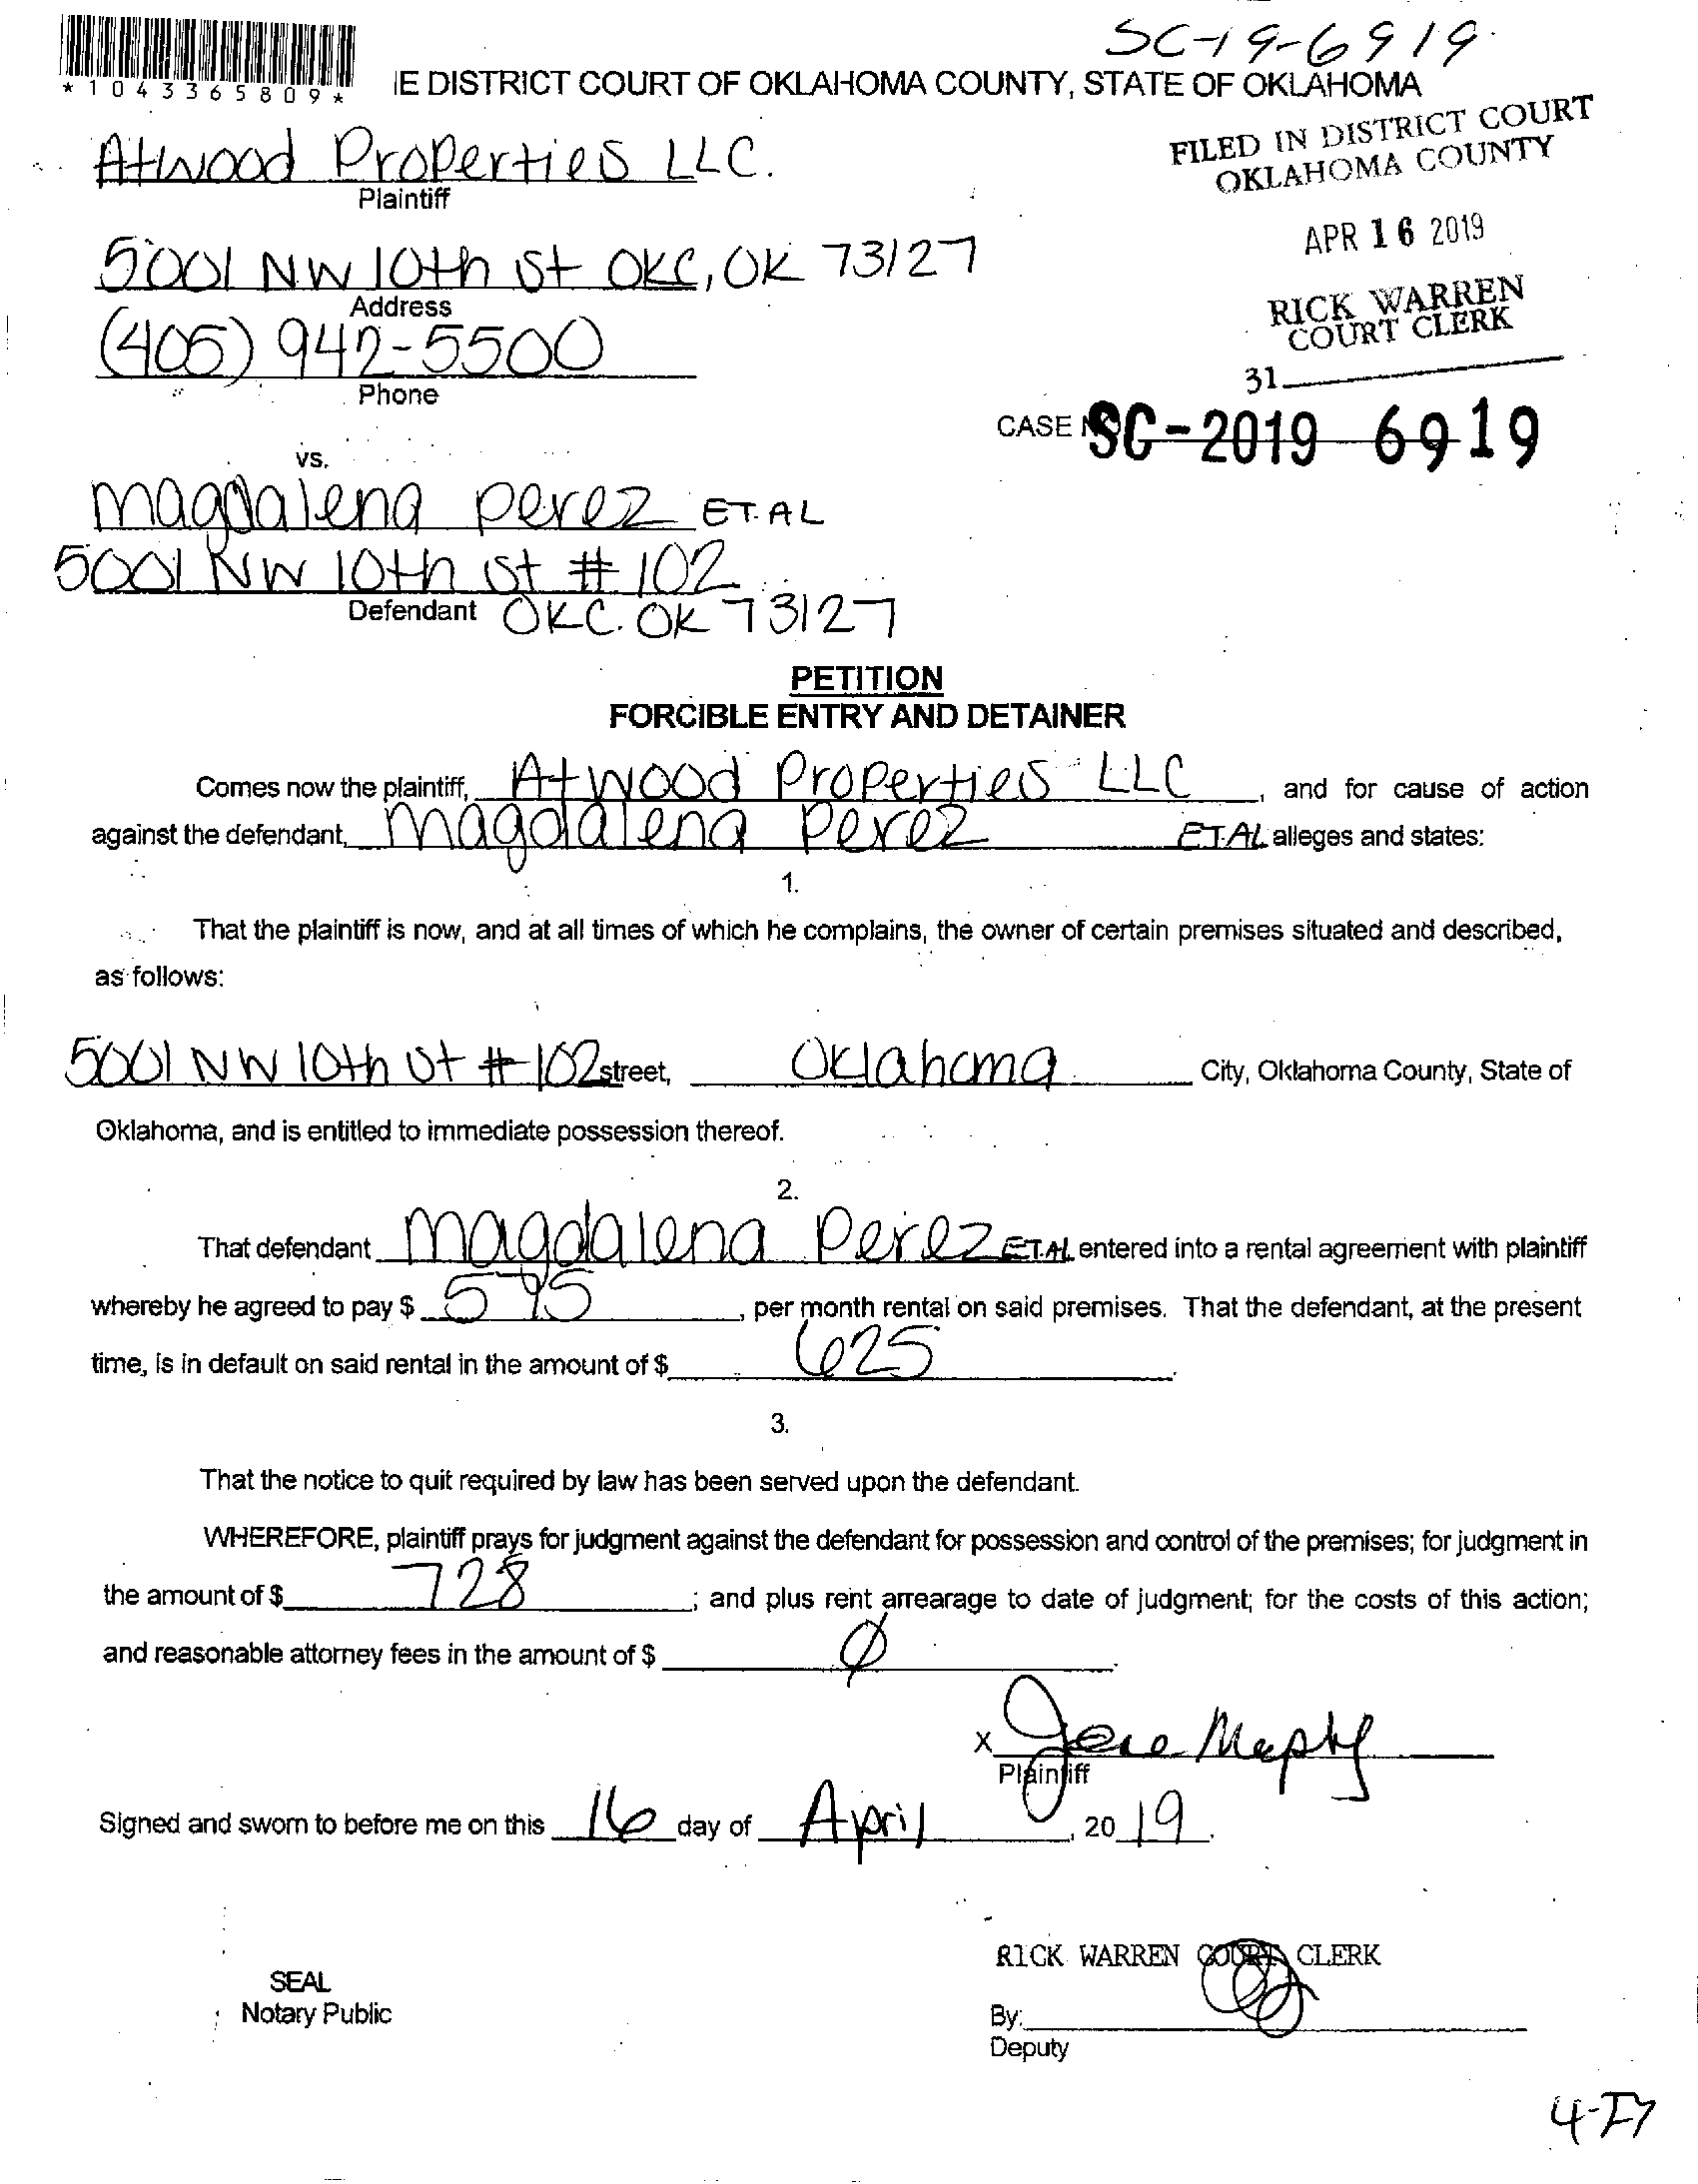 SC-19-6919
*1043365809*
IE DISTRICT COURT OF OKLAHOMA COUNTY, STATE OF OKLAHOMA
FILED IN DISTRICT COURT
OKLAHOMA COUNTY
Atwood Properties LLC.
Plaintiff
APR 16 2019
5001 NW 10th St OKC, OK 73127
Address
RICK WARREN
COURT CLERK
(405) 942-5500
Phone
31
CASE NO SC-2019 6919
vs.
Magdalena Perez ET. AL
5001 NW 10th St # 102
Defendant OKC. OK 73127
PETITION
FORCIBLE ENTRY AND DETAINER
Comes now the plaintiff, Atwood Properties LLC, and for cause of action
against the defendant, Magdalena Perez ET. AL alleges and states:
1.
That the plaintiff is now, and at all times of which he complains, the owner of certain premises situated and described,
as follows:
5001 NW 10th St # 102 street, Oklahoma City, Oklahoma County, State of
Oklahoma, and is entitled to immediate possession thereof.
2.
That defendant Magdalena Perez ET. AL entered into a rental agreement with plaintiff
whereby he agreed to pay $ 595, per month rental on said premises. That the defendant, at the present
time, is in default on said rental in the amount of $ 625.
3.
That the notice to quit required by law has been served upon the defendant.
WHEREFORE, plaintiff prays for judgment against the defendant for possession and control of the premises; for judgment in
the amount of $ 728; and plus rent arrearage to date of judgment; for the costs of this action;
and reasonable attorney fees in the amount of $ Ø.
X
Plaintiff
Signed and sworn to before me on this 16 day of April, 2019.
RICK WARREN COURT CLERK
SEAL
Notary Public
By:
Deputy